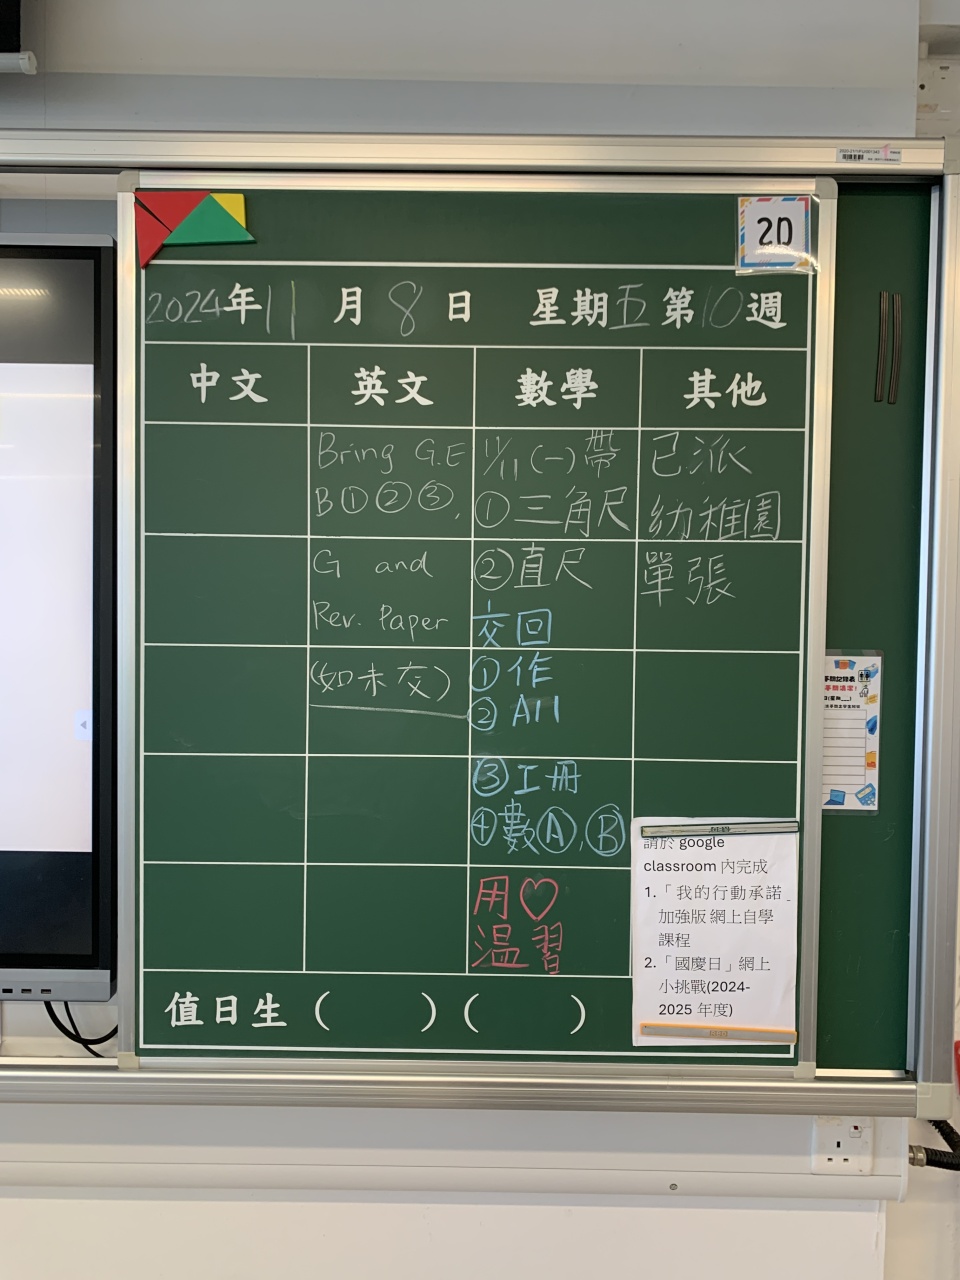 20
2024年11月8日 星期五第10週
中文 英文 數學 其他
Bring G.E
B①②③,
G and
Rev. Paper
(如未交)
11/11(一)帶
①三角尺
②直尺
交回
①作
②All
③工冊
④數Ⓐ,Ⓑ
用♡
温習
已派
幼稚園
單張
請於 google
classroom 內完成
1.「我的行動承諾
加強版 網上自學
課程
2.「國慶日」網上
小挑戰(2024-
2025 年度)
值日生 ( ) ( )